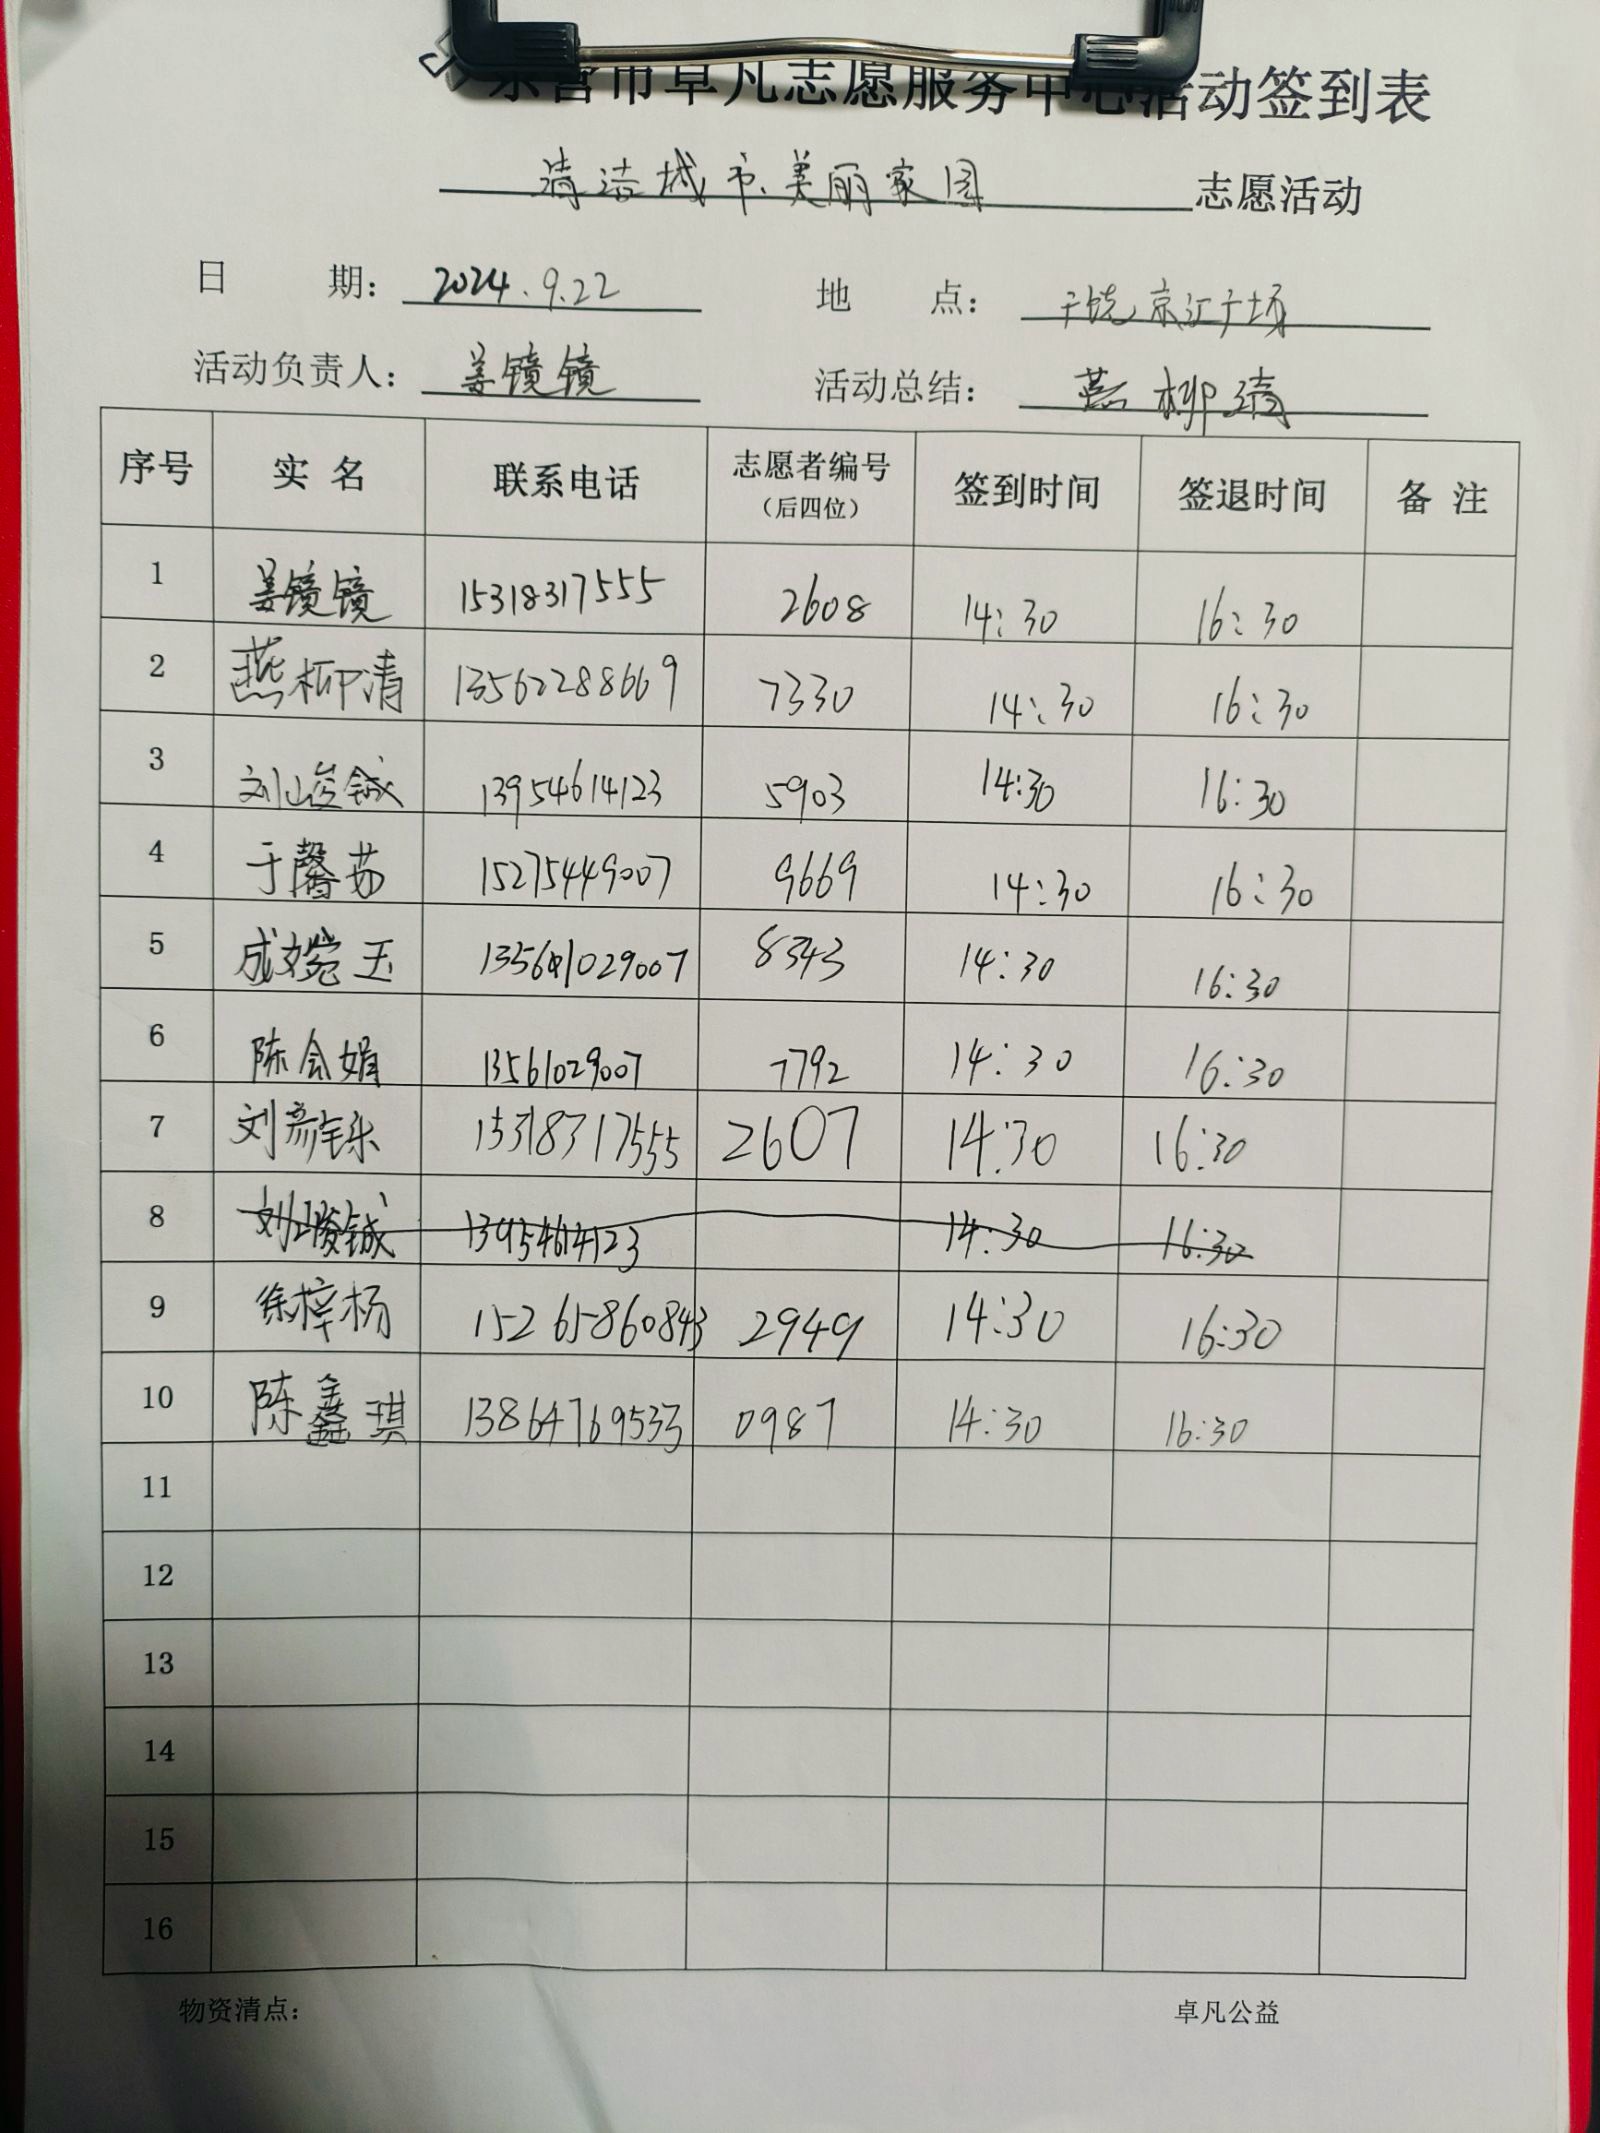 东营市卓凡志愿服务中心活动签到表
清洁城市、美丽家园 志愿活动
日 期： 2024.9.22 地 点： 广饶京江广场
活动负责人： 姜镜镜 活动总结： 燕柳清
序号 实名 联系电话 志愿者编号（后四位） 签到时间 签退时间 备注
1 姜镜镜 15318317555 2608 14:30 16:30
2 燕柳清 13562288669 7330 14:30 16:30
3 刘峻铖 13954614123 5903 14:30 16:30
4 于馨茹 15275449007 9669 14:30 16:30
5 成婉玉 13561029007 8343 14:30 16:30
6 陈会娟 13561029007 7792 14:30 16:30
7 刘彦铄 15318317555 2607 14:30 16:30
8 刘峻铖 13954614123 14:30 16:30
9 徐梓杨 15265860843 2949 14:30 16:30
10 陈鑫琪 13864769533 0987 14:30 16:30
11
12
13
14
15
16
物资清点： 卓凡公益